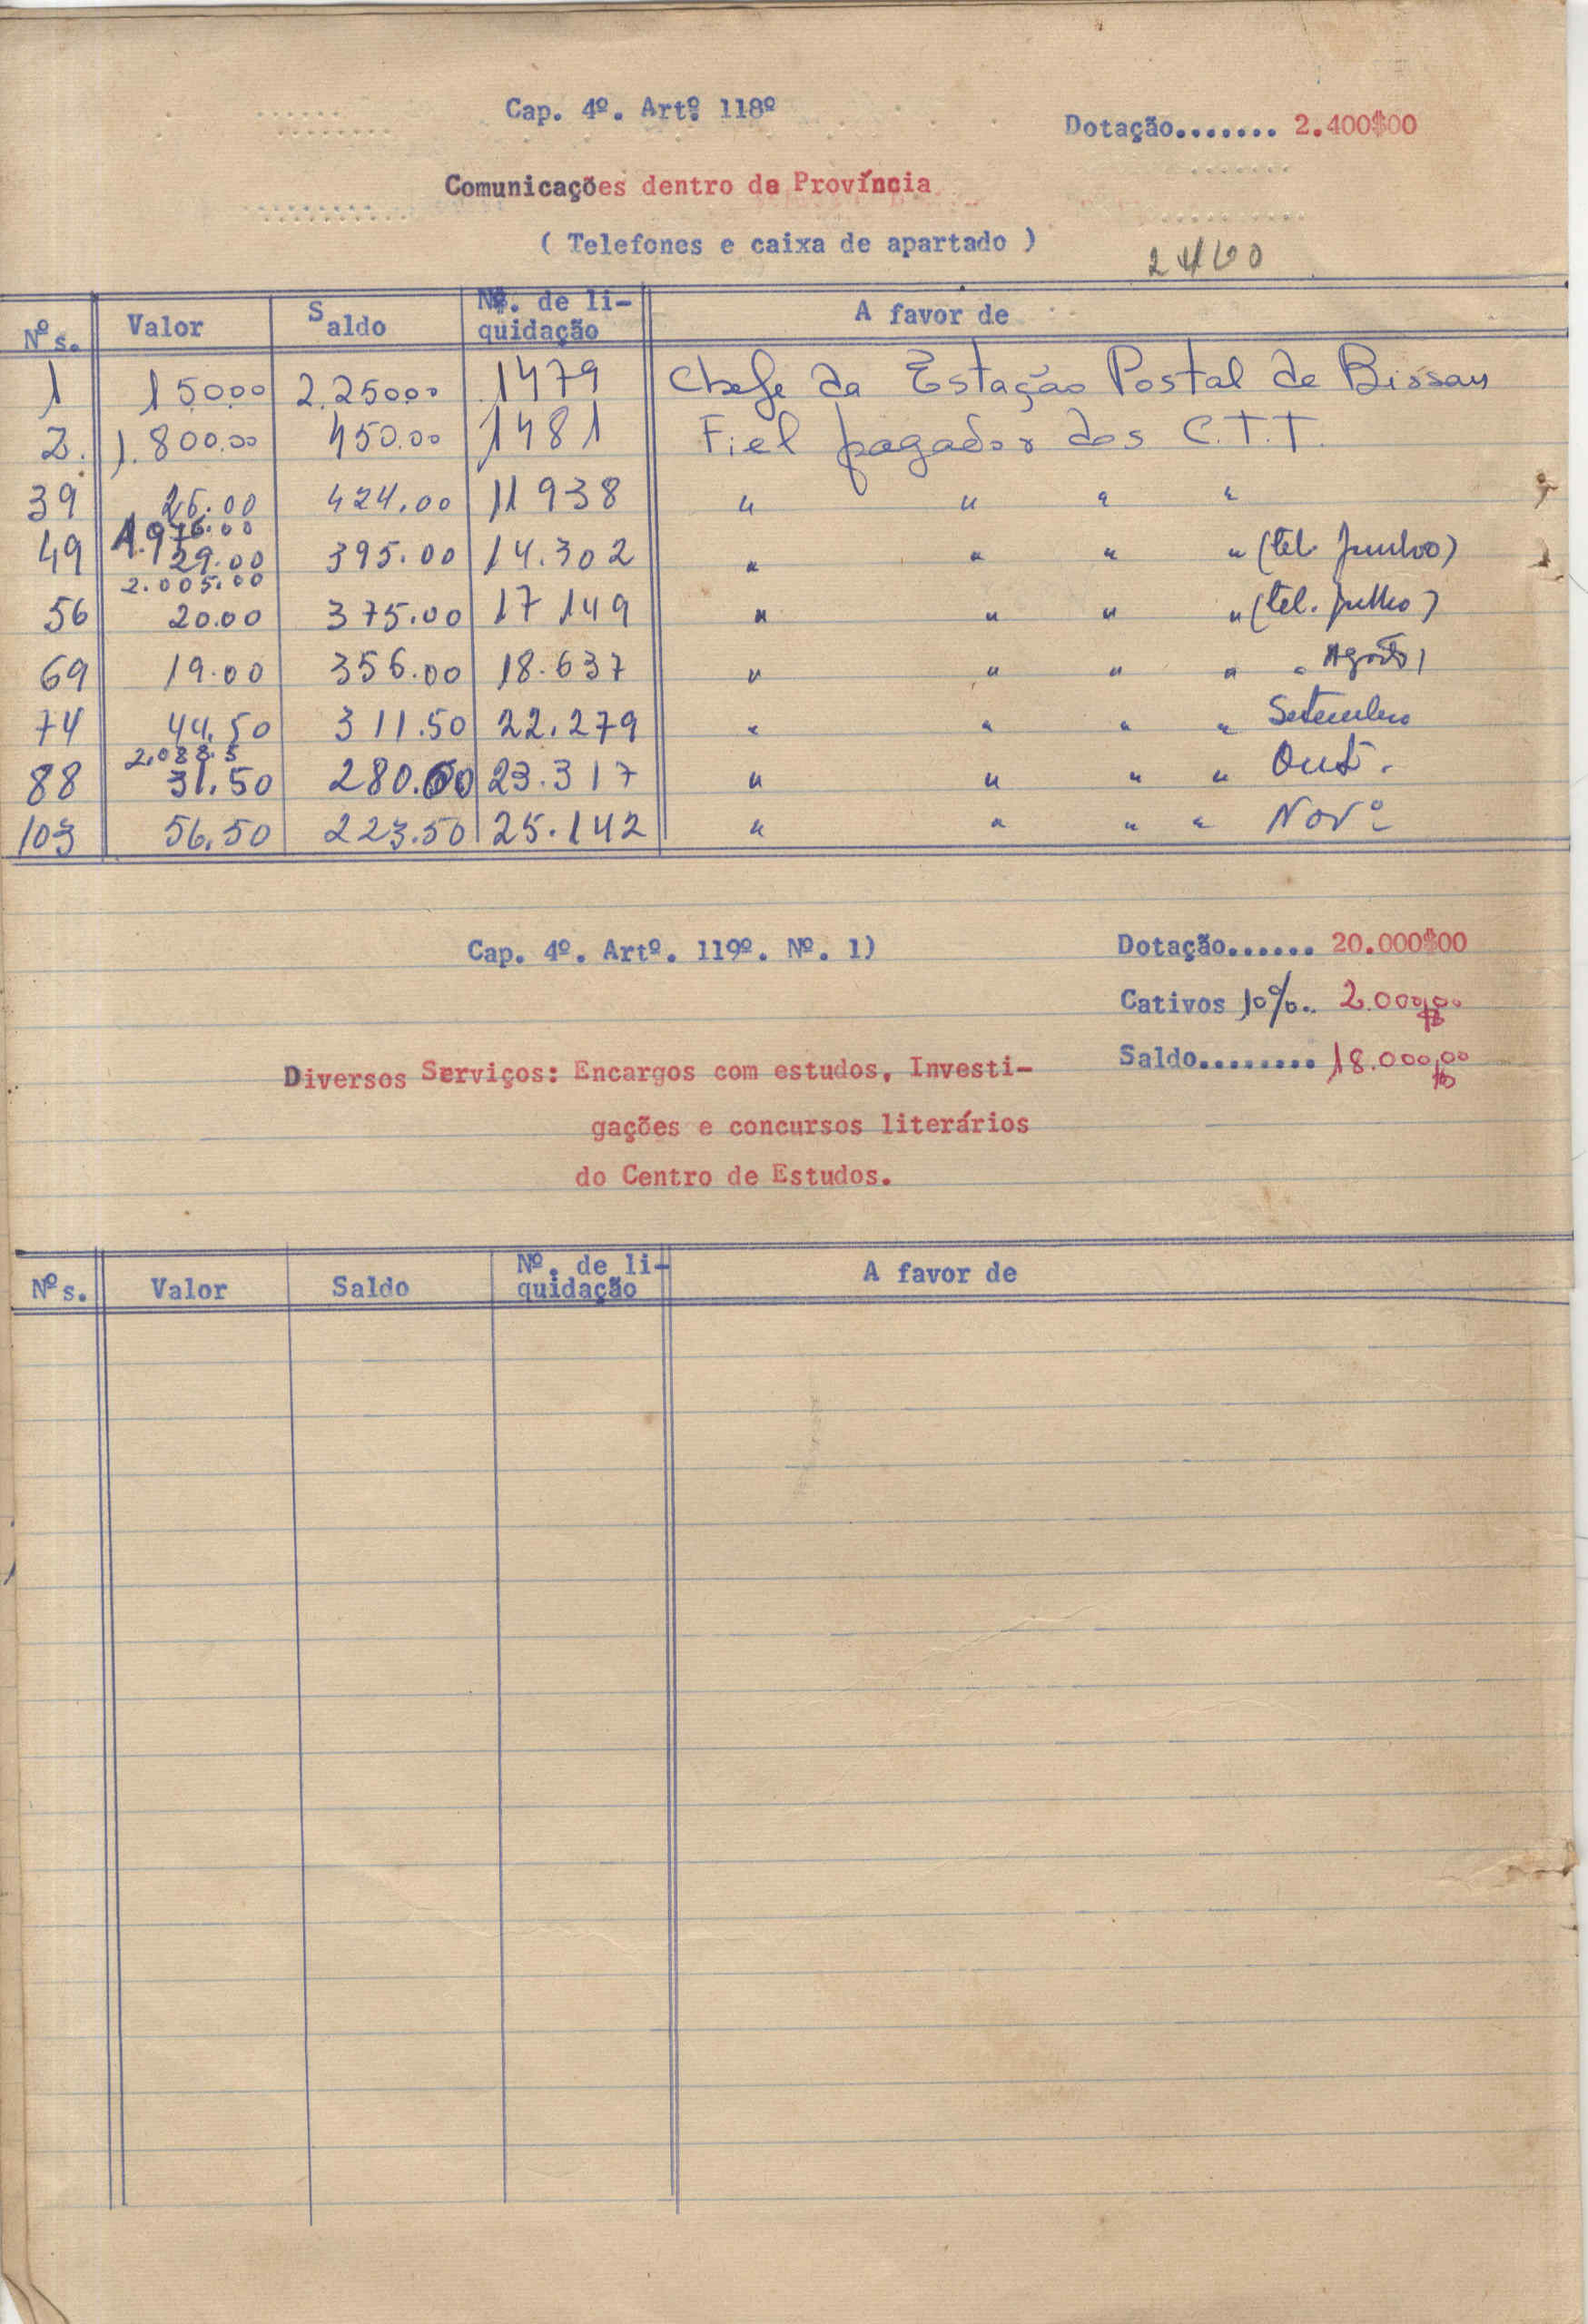 Cap. 4º. Artº. 118º
Dotação....... 2.400$00
Comunicações dentro da Província
( Telefones e caixa de apartado )
2400
Nºs. Valor Saldo Nº. de li-quidação A favor de
1 150.00 2.250.00 1479 Chefe da Estação Postal de Bissau
2. 1.800.00 450.00 1481 Fiel pagador dos C.T.T.
39 26.00 424.00 11938 " " " "
1.976.00
49 29.00 395.00 14.302 " " " " (tel. Junho)
2.005.00
56 20.00 375.00 17149 " " " " (tel. Julho)
69 19.00 356.00 18.637 " " " " " Agosto)
74 44.50 311.50 22.279 " " " " Setembro
2.088.5
88 31.50 280.00 23.317 " " " " Out.
103 56.50 223.50 25.142 " " " " Novº
Cap. 4º. Artº. 119º. Nº. 1)
Dotação...... 20.000$00
Cativos 10%.. 2.000$00
Saldo........ 18.000$00
Diversos Serviços: Encargos com estudos, Investi-
gações e concursos literários
do Centro de Estudos.
Nºs. Valor Saldo Nº. de li-quidação A favor de